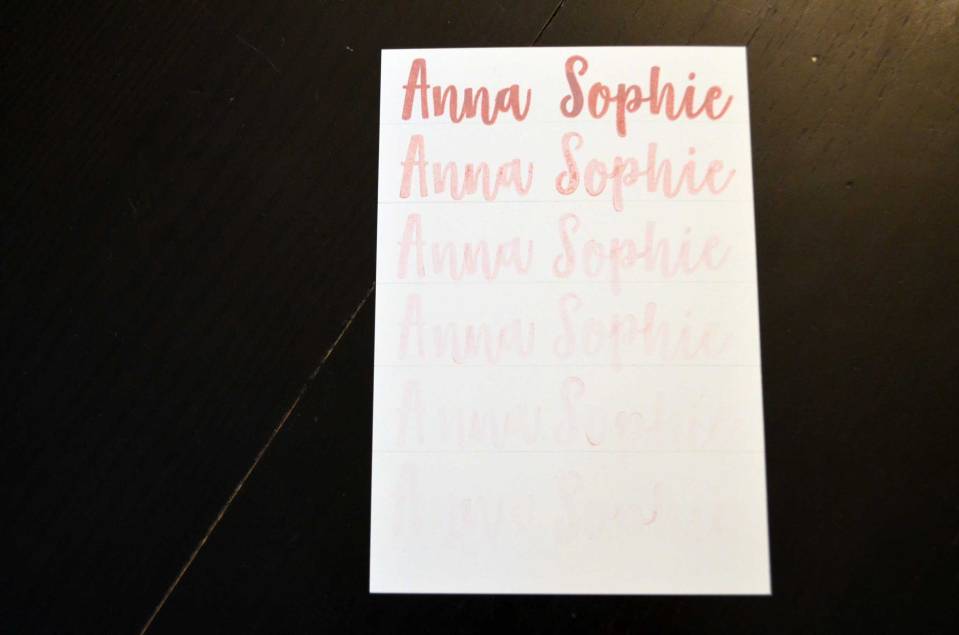 Anna Sophie
Anna Sophie
Anna Sophie
Anna Sophie
Anna Sophie
Anna Sophie